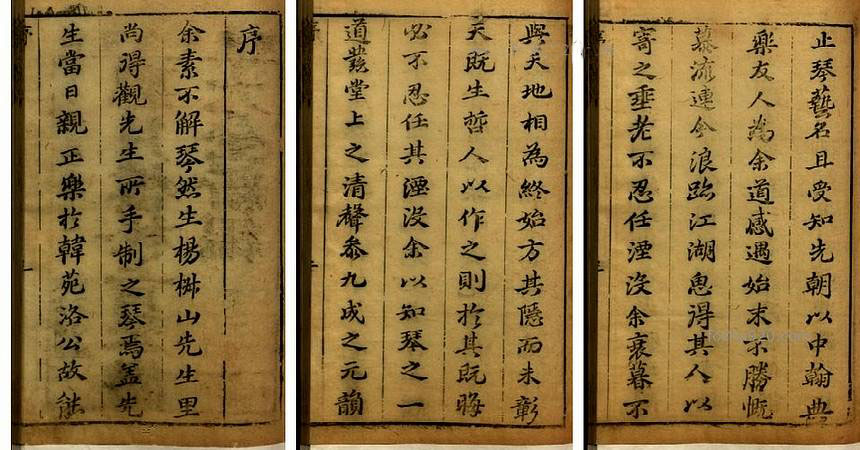 序
余素不解琴然生楊椒山先生里
尚得觀先生所手制之琴焉盖先
生當日親正樂於韓苑洛公故能
與天地相為終始方其隱而未彰
天既生哲人以作之則於其既晦
必不忍任其湮沒余以知琴之一
道發堂上之清聲叅九成之元韻
止琴藝名且受知先朝以中翰典
樂友人為余道感遇始末不勝慨
慕流連今浪跡江湖思得其人以
寄之垂老不忍任湮沒余衰暮不